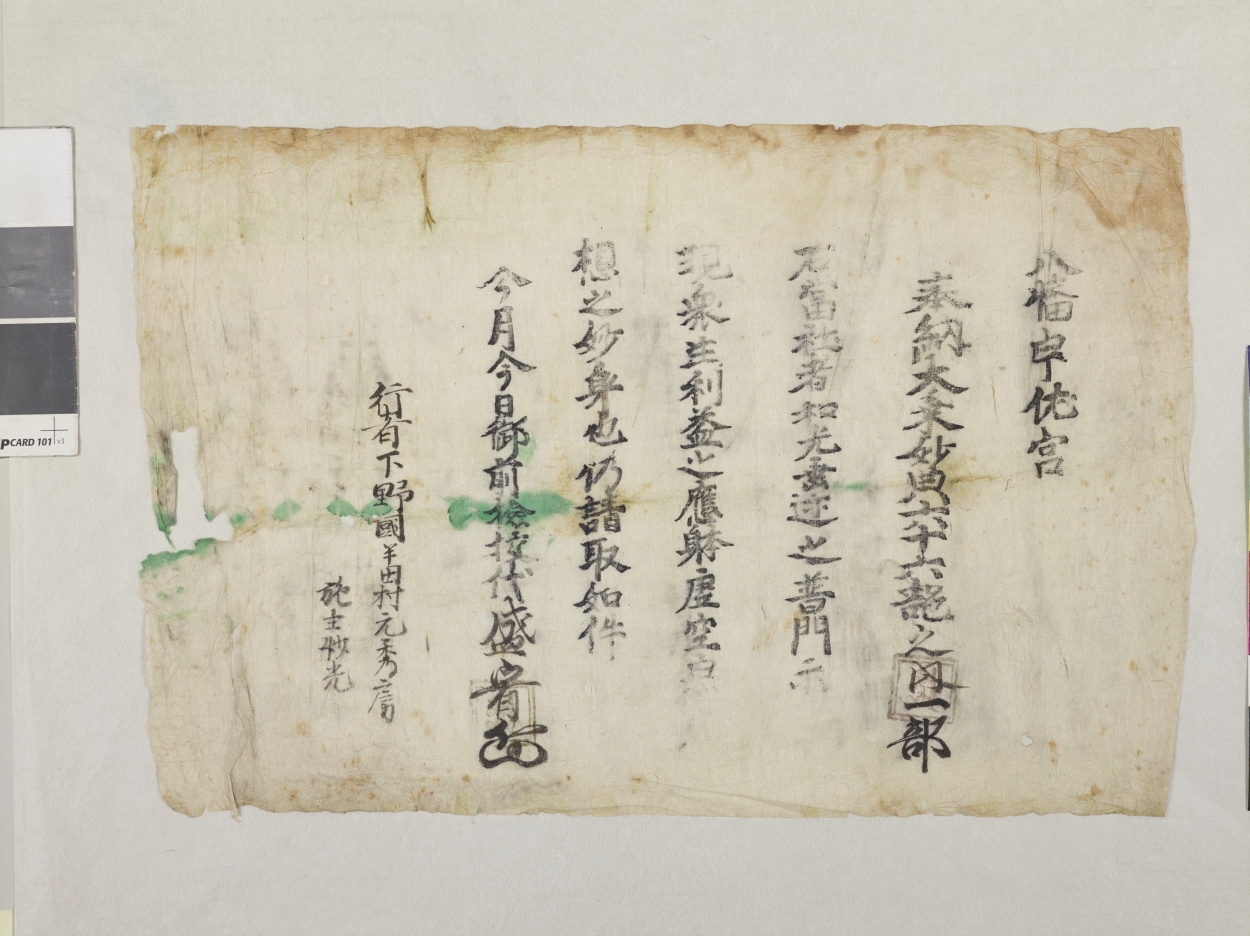 八幡申侘宮
奉納大乗妙典六十六部之内一部
右當社者和光垂迹之普門示
現衆生利益之應躰虚空
想之妙身也仍請取如件
今月今日御前検校代盛
行者下野國半田村元秀房
施主妙光
CARD 101 v3